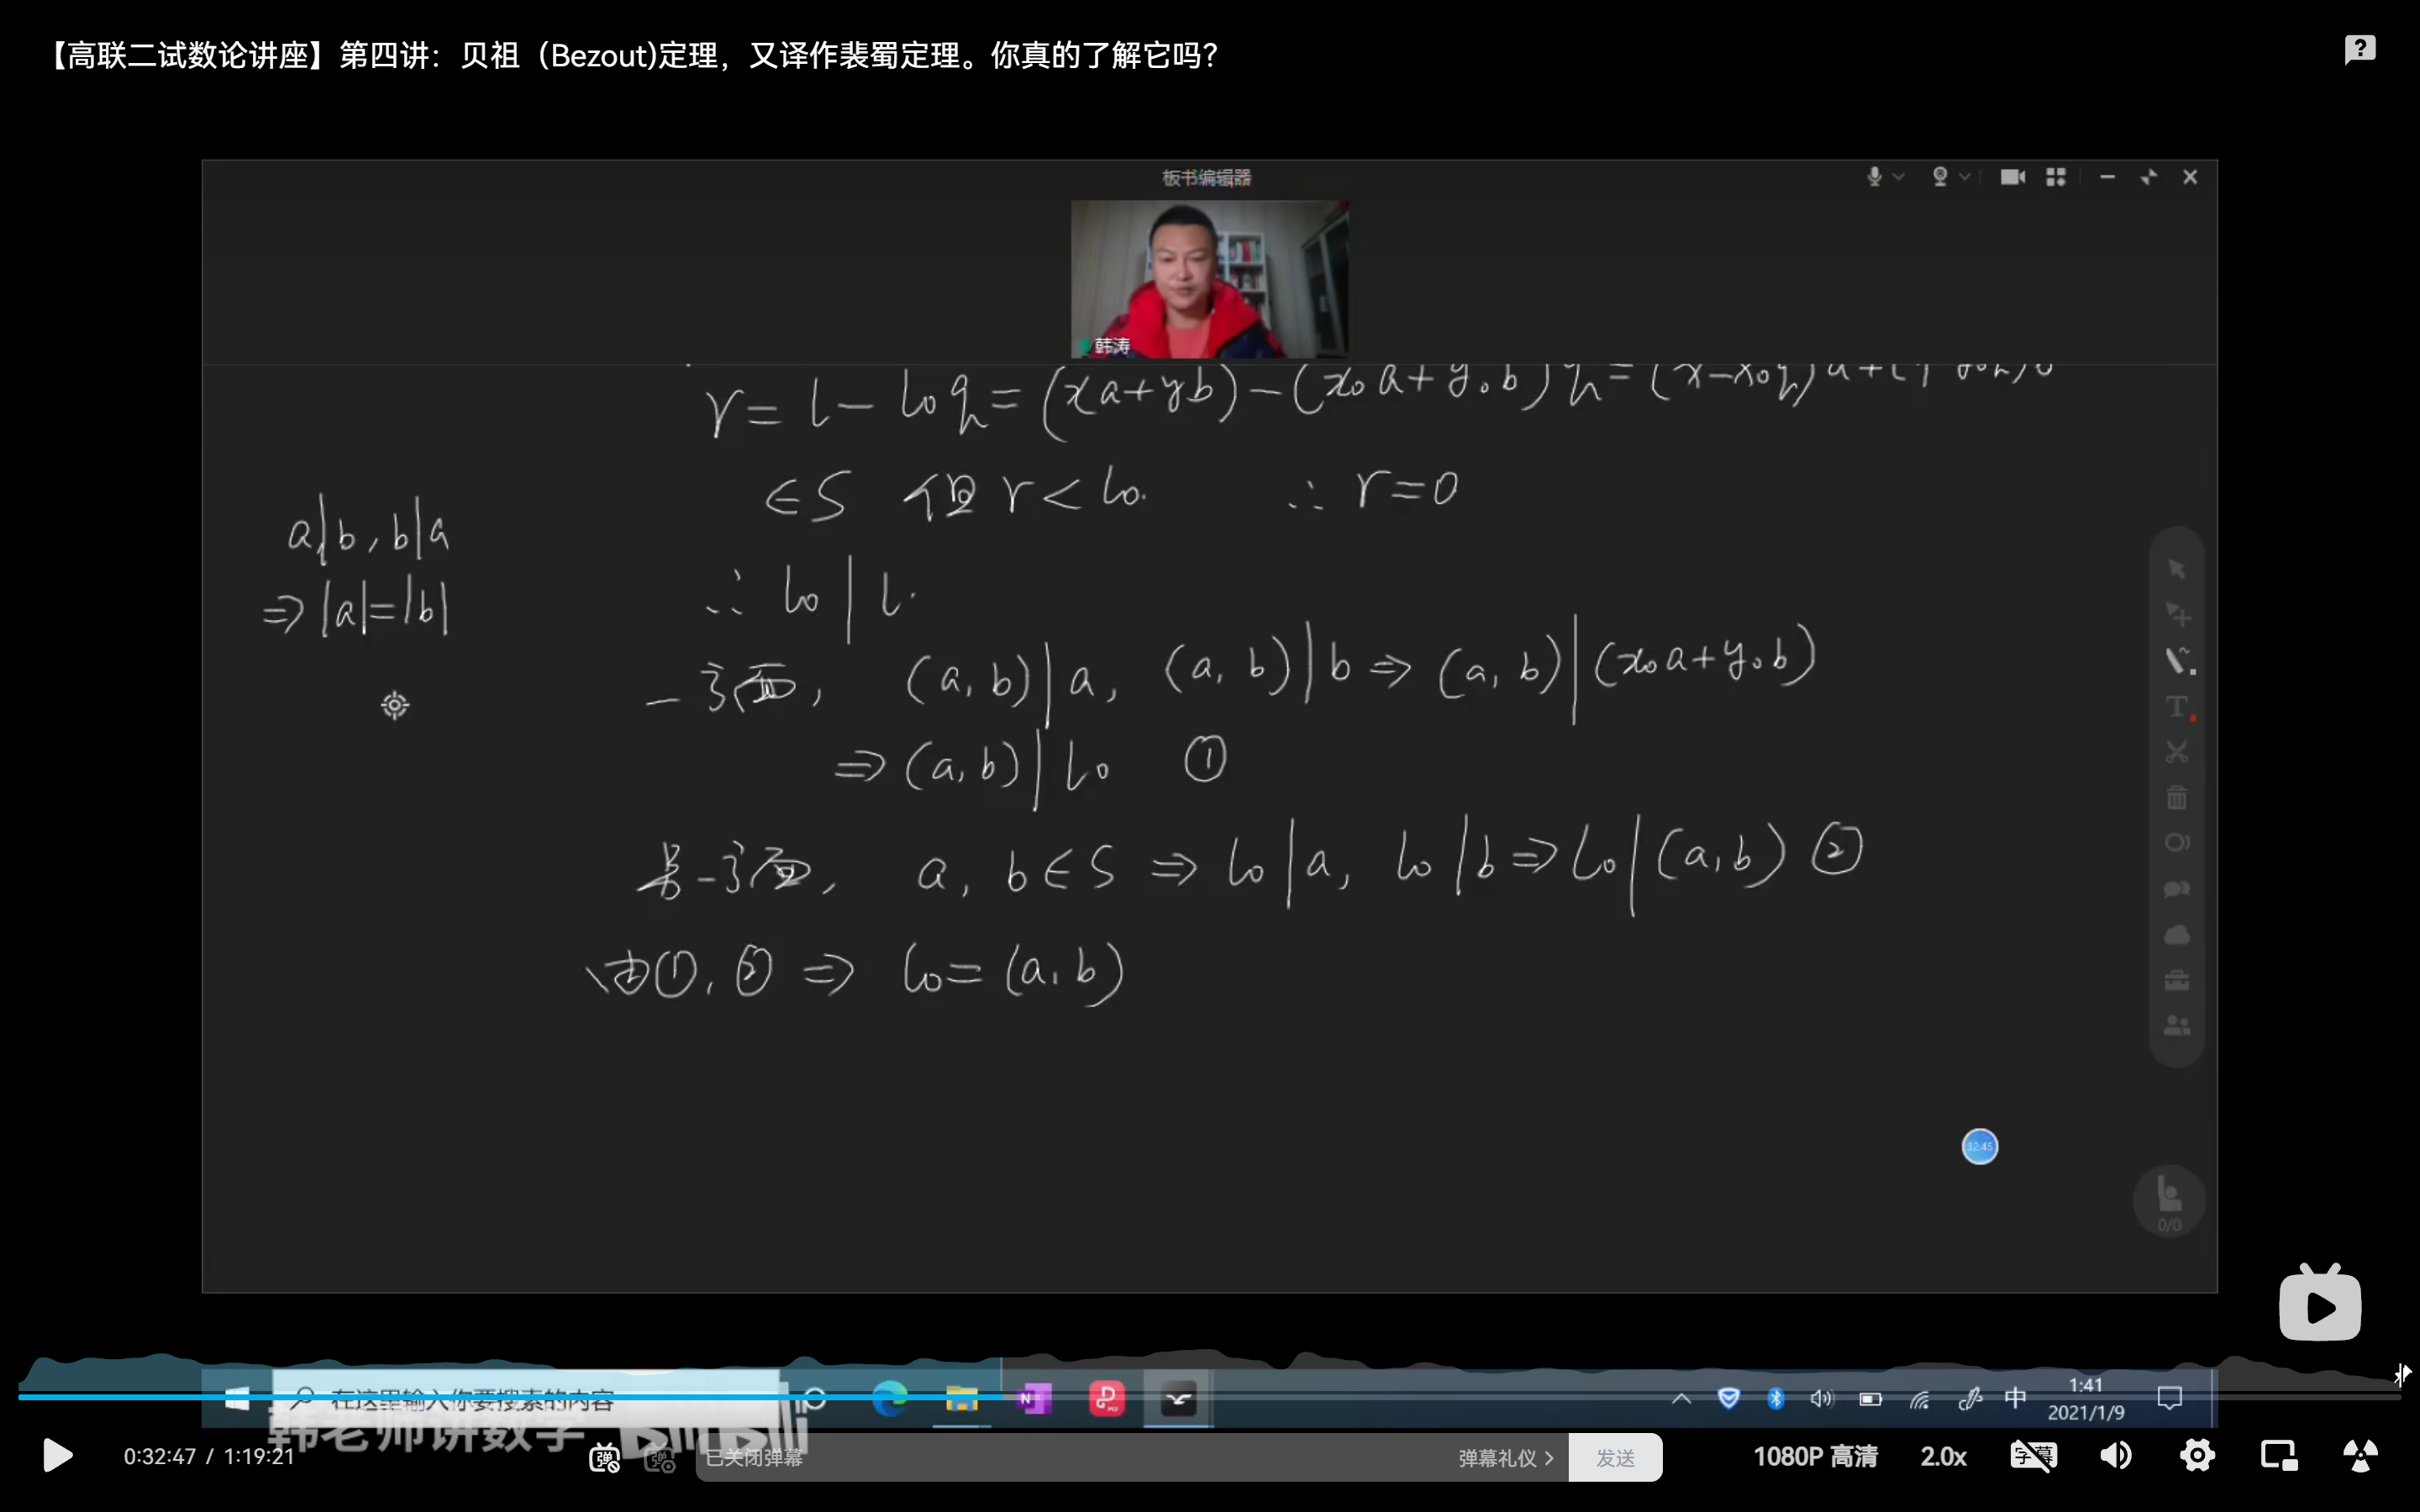 【高联二试数论讲座】第四讲：贝祖（Bezout)定理，又译作裴蜀定理。你真的了解它吗？
板书编辑器
韩涛
r = l - l₀q = (xa+yb) - (x₀a+y₀b)q = (x-x₀q)a+(y-y₀q)b
∈S 但 r < l₀. ∴ r=0
a|b, b|a
⇒ |a|=|b|
∴ l₀ | l.
一方面, (a, b)|a, (a, b)|b ⇒ (a, b)|(x₀a+y₀b)
⇒ (a, b)| l₀ ①
另一方面, a, b∈S ⇒ l₀|a, l₀|b ⇒ l₀|(a, b) ②
由①, ② ⇒ l₀ = (a, b)
32:45
0/0
在这里输入你要搜索的内容
中
1:41
2021/1/9
韩老师讲数学 bilibili
0:32:47 / 1:19:21
弹
弹
已关闭弹幕
弹幕礼仪 >
发送
1080P 高清
2.0x
字幕